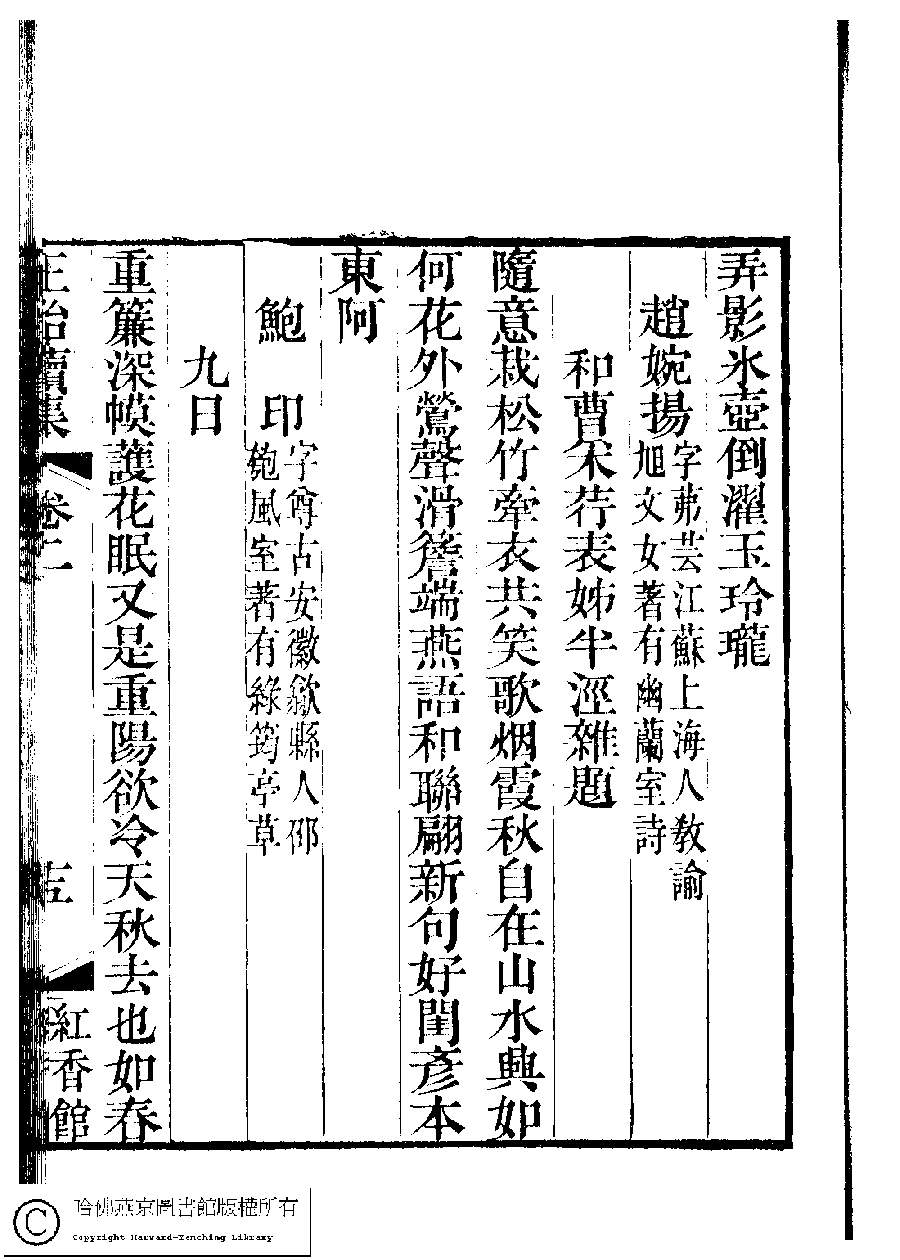 弄影氷壺倒濯玉玲瓏
趙婉揚
字茀芸江蘇上海人教諭
旭文女著有幽蘭室詩
和曹宋荇表姊半涇雜題
隨意栽松竹牽衣共笑歌烟霞秋自在山水興如
何花外鶯聲滑簷端燕語和聯翩新句好閨彥本
東阿
鮑印
字尊古安徽歙縣人邵
匏風室著有綠筠亭草
九日
重簾深幙護花眠又是重陽欲冷天秋去也如春
正始續集
卷二
紅香館
哈佛燕京圖書館版權所有
Copyright Harvard-Yenching Library